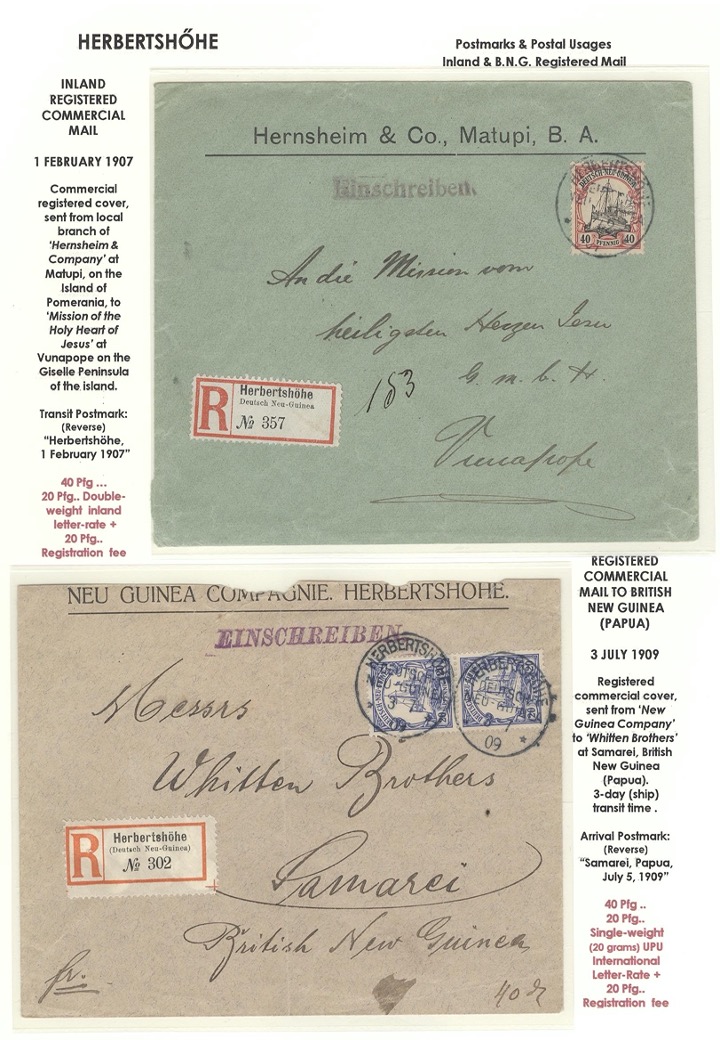 HERBERTSHŐHE
Postmarks & Postal Usages
Inland & B.N.G. Registered Mail
INLAND
REGISTERED
COMMERCIAL
MAIL
1 FEBRUARY 1907
Commercial
registered cover,
sent from local
branch of
'Hernsheim &
Company' at
Matupi, on the
Island of
Pomerania, to
'Mission of the
Holy Heart of
Jesus' at
Vunapope on the
Giselle Peninsula
of the island.
Transit Postmark:
(Reverse)
"Herbertshöhe,
1 February 1907"
40 Pfg ...
20 Pfg.. Double-
weight inland
letter-rate +
20 Pfg..
Registration fee
Hernsheim & Co., Matupi, B. A.
Einschreiben.
DEUTSCH-NEU-GUINEA
40 PFENNIG 40
An die Mission vom
heiligsten Herzen Jesu
G. m. b. H.
153
Vunapope
R
Herbertshöhe
Deutsch Neu-Guinea
№ 357
NEU GUINEA COMPAGNIE. HERBERTSHÖHE.
EINSCHREIBEN
HERBERTSHÖHE
DEUTSCH-
NEU-GUINEA
3 7
09
HERBERTSHÖHE
DEUTSCH-
NEU-GUINEA
3 7
09
Messrs
Whitten Brothers
Samarei
British New Guinea
R
Herbertshöhe
(Deutsch Neu-Guinea)
№ 302
fr.
40 d
REGISTERED
COMMERCIAL
MAIL TO BRITISH
NEW GUINEA
(PAPUA)
3 JULY 1909
Registered
commercial cover,
sent from 'New
Guinea Company'
to 'Whitten Brothers'
at Samarei, British
New Guinea
(Papua).
3-day (ship)
transit time .
Arrival Postmark:
(Reverse)
"Samarei, Papua,
July 5, 1909"
40 Pfg ..
20 Pfg..
Single-weight
(20 grams) UPU
International
Letter-Rate +
20 Pfg..
Registration fee